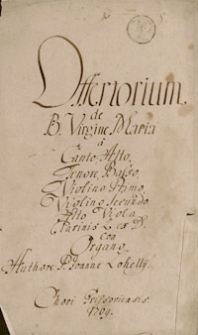 Offertorium
de
B. Virgine Maria
à
Canto, Alto,
Tenore, Basso,
Violino Primo,
Violino Secundo
Alto Viola
Clarinis
con
Organo.
Authore P. Joanne Lohelly
Chori
1769.